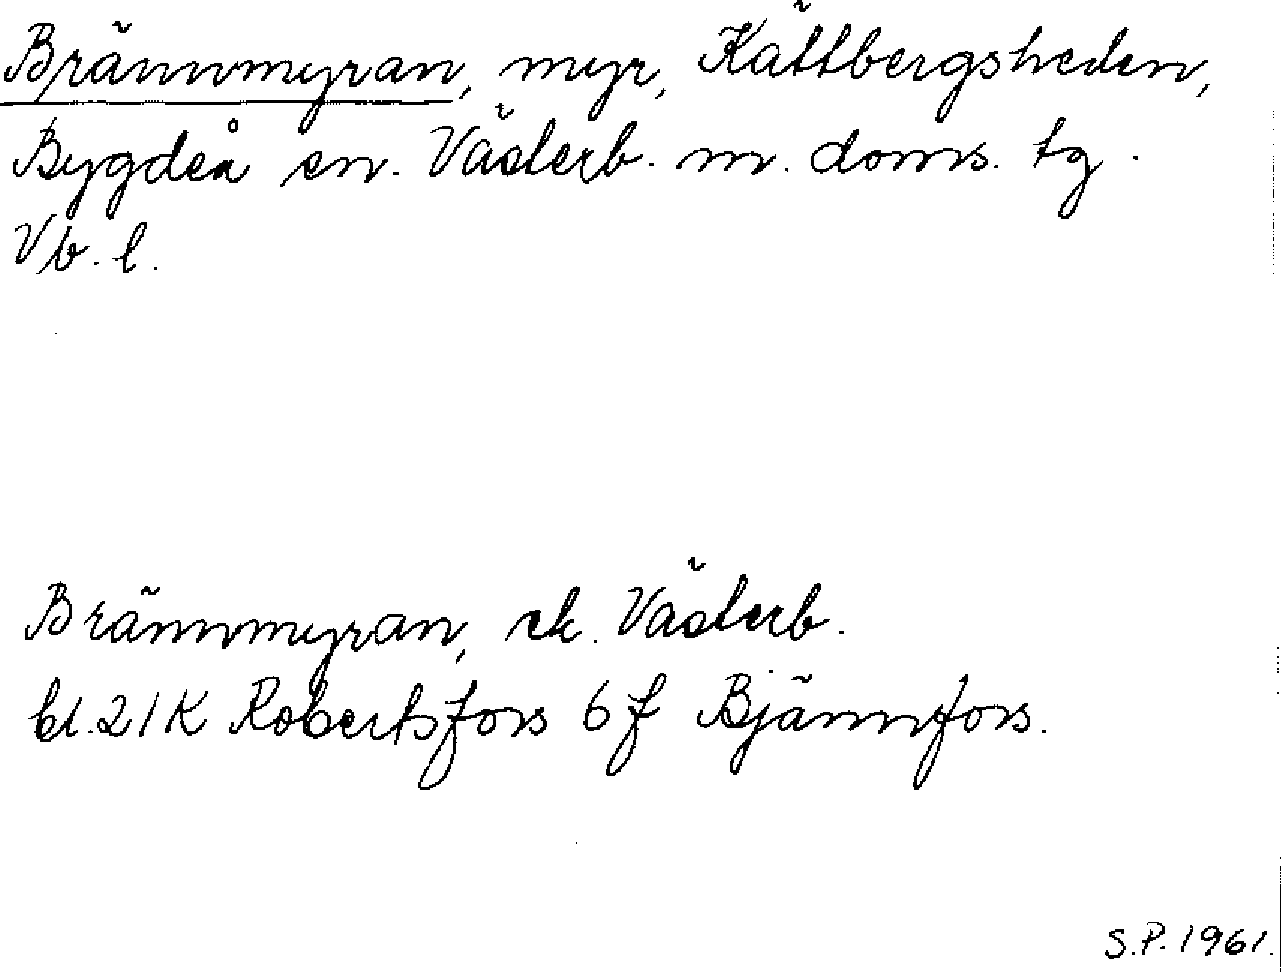 Brännmyran, myr, Kättbergsheden,
Bygdeå sn. Västerb. m. doms. tg.
Vb. l.
Brännmyran, ek. Västerb.
bl. 21K Robertsfors 6f Bjännfors.
S.P. 1961.